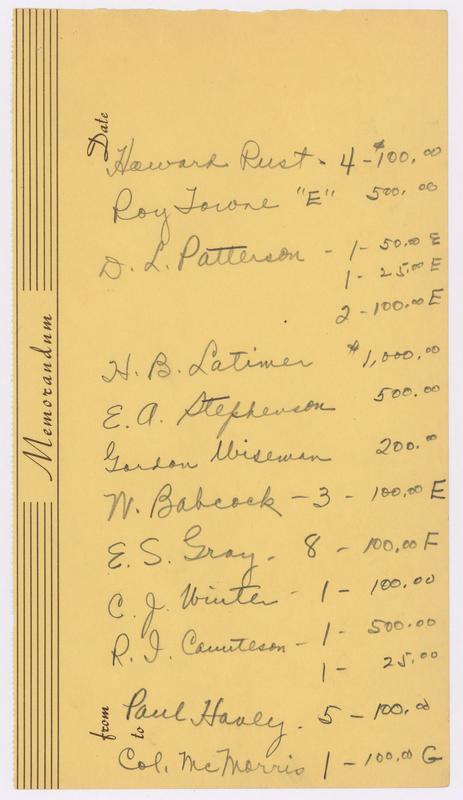 Memorandum
Date
Howard Rust - 4 - $100.00
Roy Towne "E" 500.00
D. L. Patterson - 1 - 50.00 E
1 - 25.00 E
2 - 100.00 E
H. B. Latimer $1,000.00
E. A. Stephenson 500.00
Gordon Wiseman 200.00
W. Babcock - 3 - 100.00 E
E. S. Gray - 8 - 100.00 F
C. J. Winter - 1 - 100.00
R. I. - 1 - 500.00
1 - 25.00
from
to
Paul Havey - 5 - 100.00
Col. McMorris 1 - 100.00 G